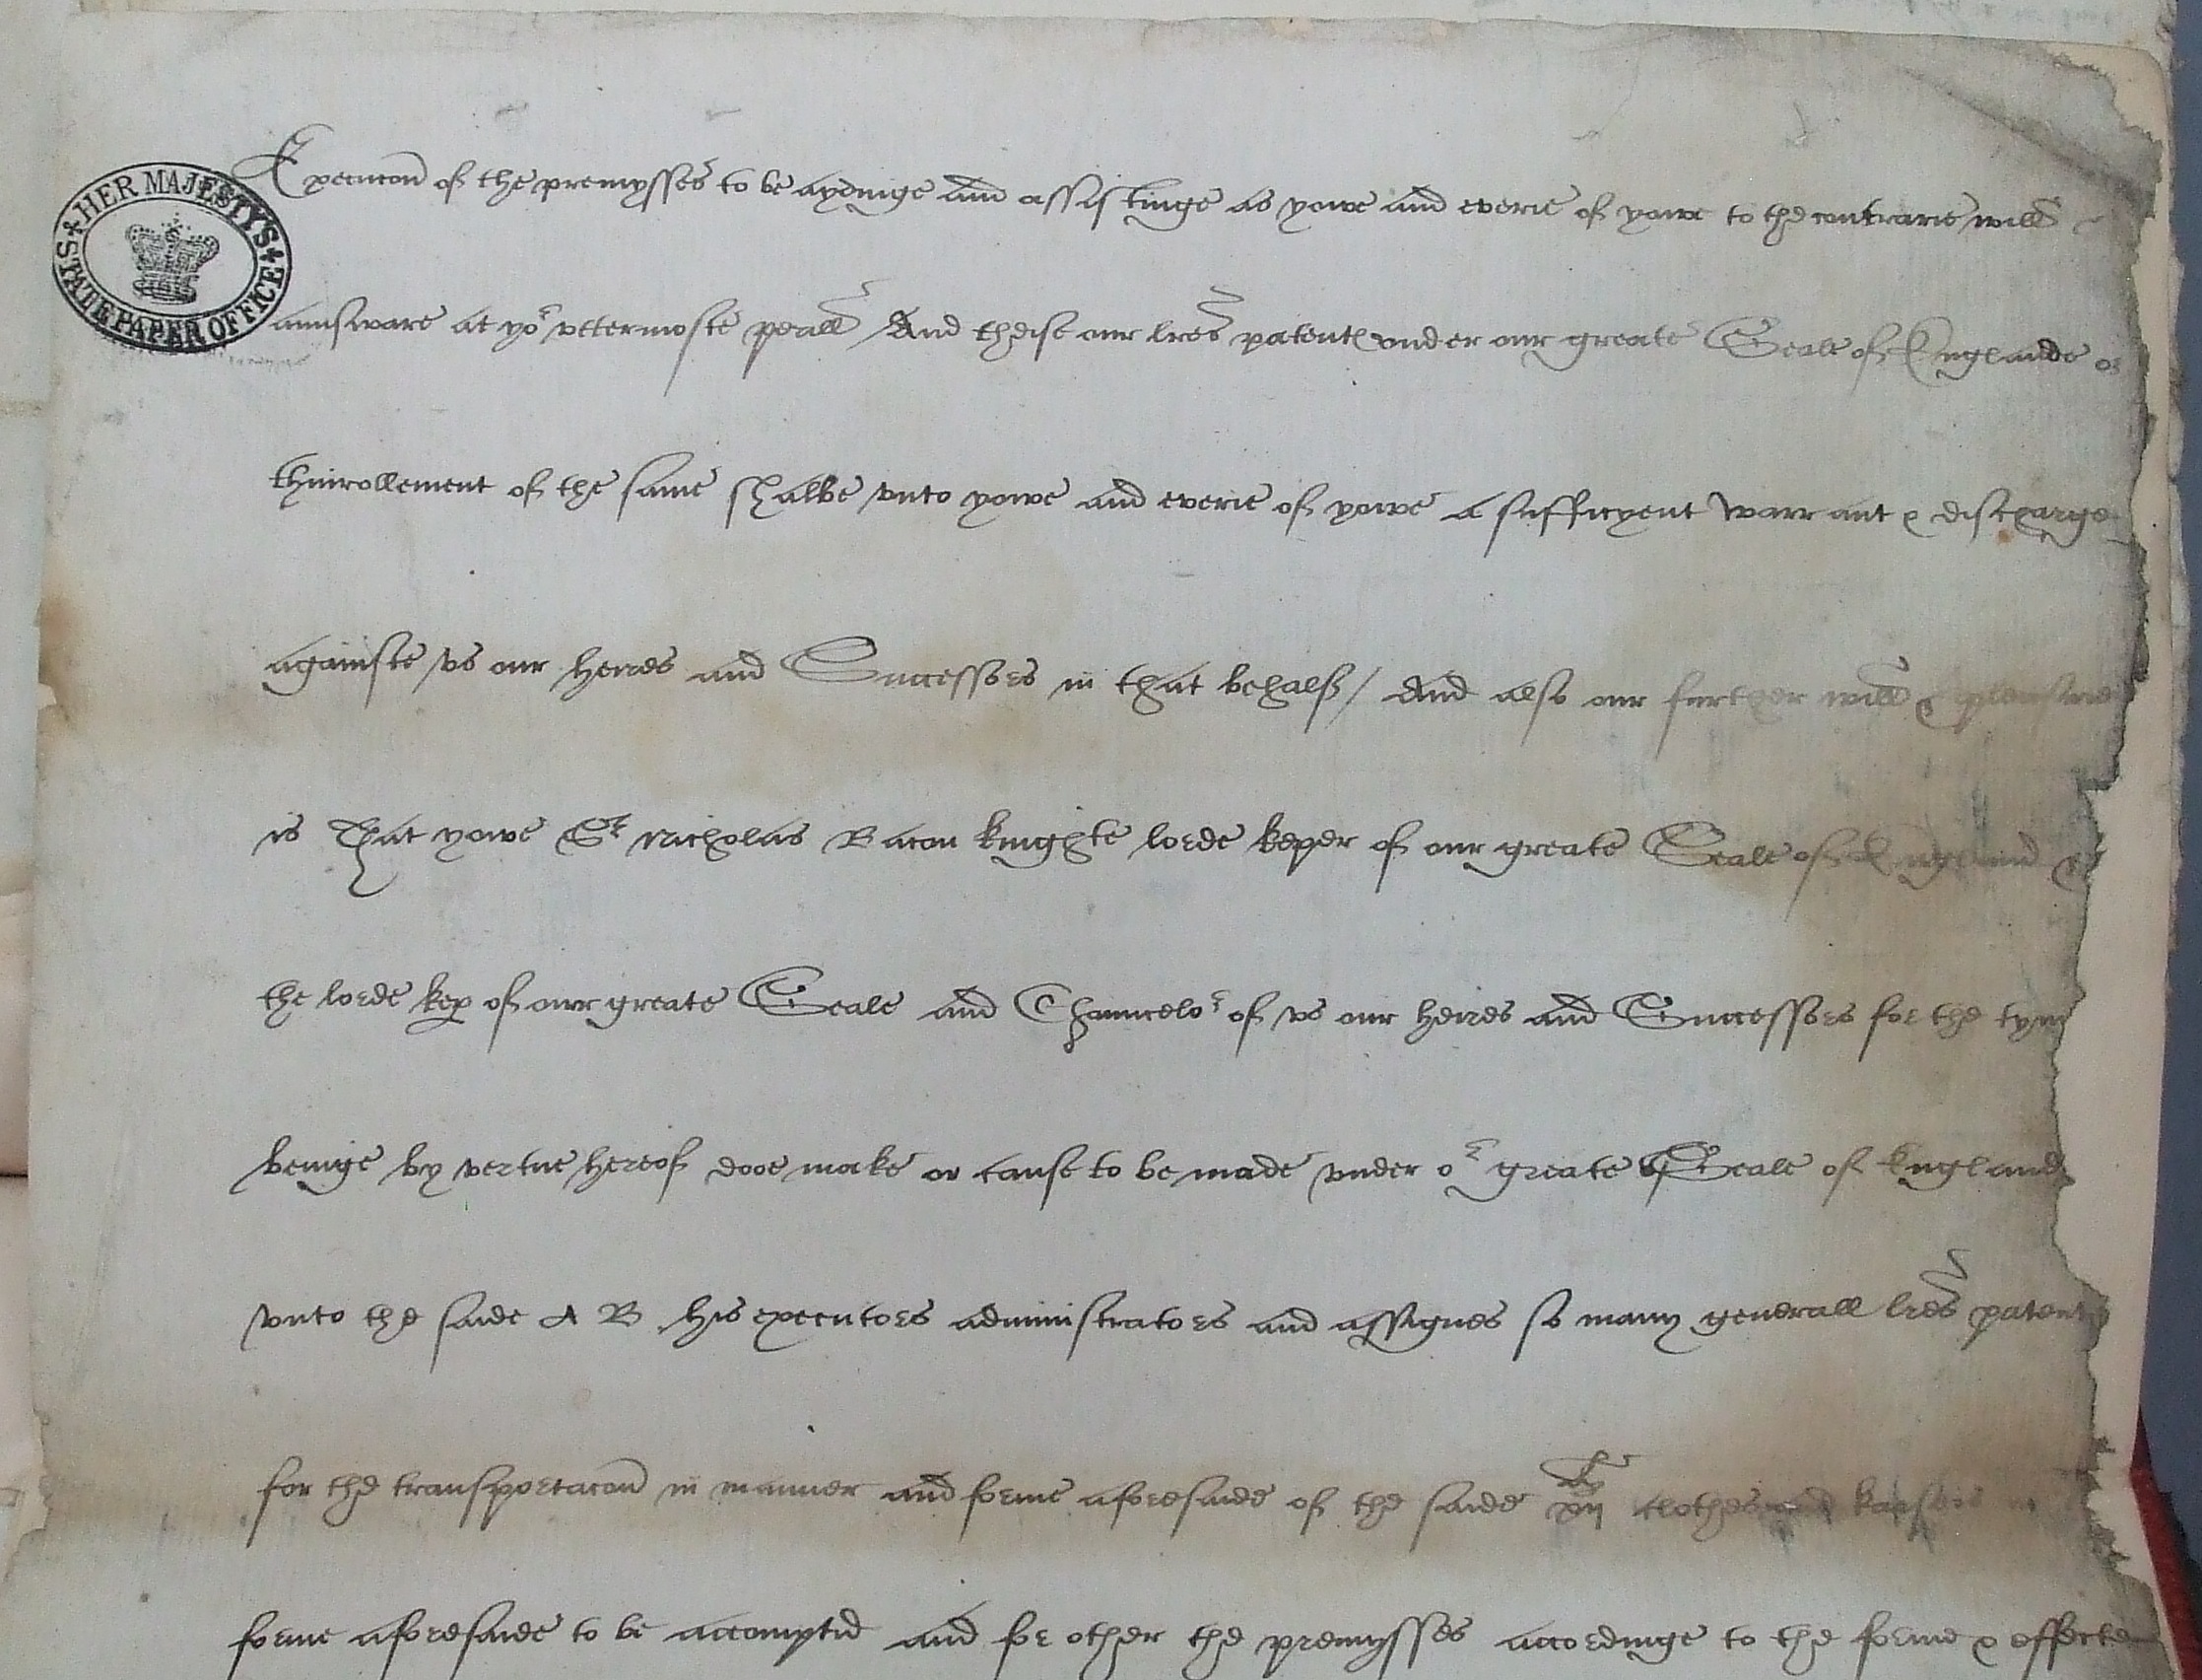 HER MAJESTY'S STATE PAPER OFFICE
Execucon of the premysses to be aydinge and assistinge as yowe and everie of yowe to the contrarie will
aunsware at yor vttermoste perall And theise our lres patent vnder our greate Seale of Englande or
thinrollement of the same shalbe vnto yowe and everie of yowe a sufficyent warrant & discharge
againste vs our heires and Successors in that behalf / And also our further will & pleasure
is That yowe Sr Nicholas Bacon knighte lorde keper of our greate Seale of England &
the lorde kep of our greate Seale and Chauncelor of vs our heires and Successors for the tyme
beinge by vertue hereof dooe make or cause to be made vnder or greate Seale of England
vnto the saide A B his executors administrators and assignes so many generall lres patent
for the transportacon in manner and forme aforesaide of the saide clothes and karseis
forme aforesaide to be accomptid and for other the premysses accordinge to the forme & effecte